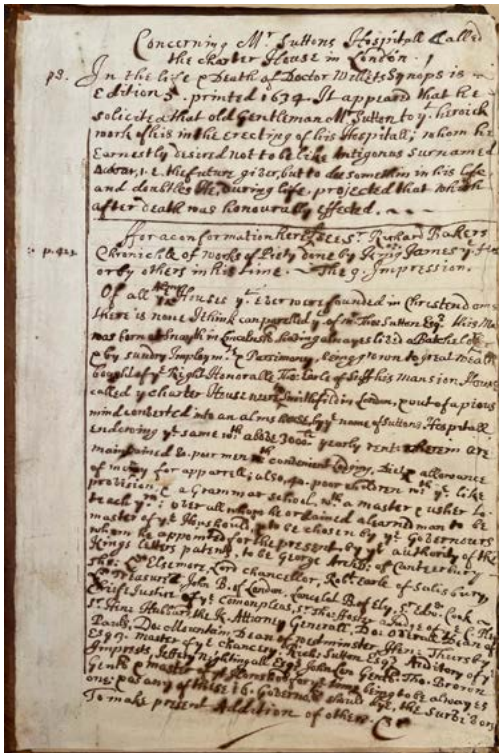 Concerning Mr Suttons Hospitall Called
the Charter House in London.
p3. In the life & Death of Doctor Willets Synopsis
Edition 5. printed 1634. It appeared that he
solicited that old Gentleman Mr Sutton to yt heroick
work of his in the erecting of his Hospitall; whom he
Earnestly desired not to be like Antigonus surnamed
i.e. the future giver, but to doe somthin in his life
and doubtles He, during life, projected that which
after death was honourally effected.
ffor a conformation hereof see Sr. Richard Bakers
p. 423. Chronicle of works of Piety done by King James ye first
or by others in his time. The 9. Impression.
Of all the Houses yt Ever were founded in Christendome
there is none I think can parrelled yt of Mr Tho: Sutton Esqr. this Man
was born at Snayth in Lincolnsh. having alwayes liv'd a Batchelor
& by sundry Imploymts & Parsimony, being grown to great wealth
bought of ye Right Honoralle Tho: Earle of Suff his Mansion House
called ye charter House neere Smithfild in London, & out of a pious
mind converted into an alms house by ye name of Suttons Hospitall
endowing ye same wth above 3000 yearly rents wherein are
maintained 80. poor men wth convenient Lodging, Diet & allowance
of mony for apparrell; also, 40. poor children wth ye like
provision, & a Grammar school, wth a master & usher to
teach ym: over all whom he ordained a learnd man to be
master of ye Houshould, to be chosen by ye Governours
whom he appointed for the present, by ye authority of the
Kings letters patents, to be George Archb: of Canterbury
Tho: Ld Elsemore, Lord chancellor, Robt Earle of Salisbury
Ld Treasurer, John B. of London, Lancelat B. of Ely, Sr Edw: Cook
Chief Justice of ye Comonpleas, Sr Tho: Foster a Judge of
Sr Hen: Hubbart, the K. Attorny Generall, Do: Overall Dean of
Pauls, Do: Mountain, Dean of Westminster, Hen: Thursby
Esq master of ye chancery, Richd Sutton Esqr Auditory of ye
Imprists, Jeffery Nightingall Esqr John Law Gentle. Tho: Brown
Gentle & master of ye Houshou for ye time being to be alwayes
one: & as any of these 16. Governors should dye, the Survivors
To make present Addition of others.